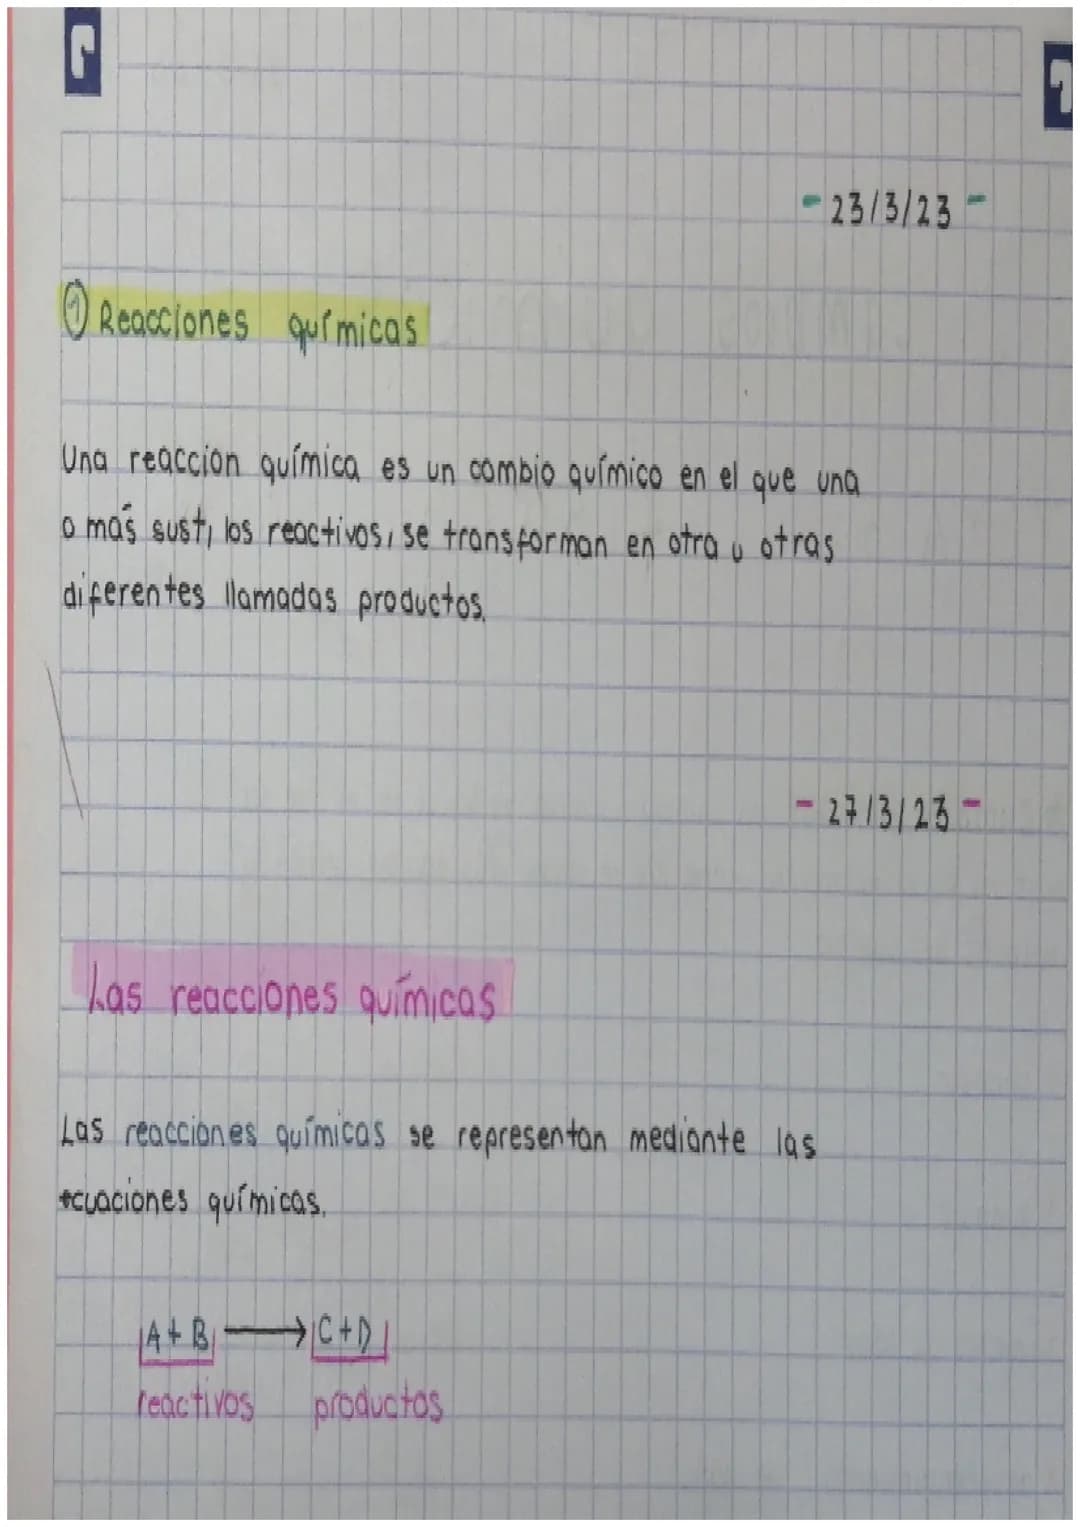 - 23/3/23 -
① Reacciones químicas
Una reaccion química es un cambio químico en el que una
o más sust, los reactivos, se transforman en otra u otras
diferentes llamadas productos.
- 27/3/23 -
Las reacciones químicas
Las reacciones químicas se representan mediante las
ecuaciones químicas.
A + B → C + D
reactivos productos